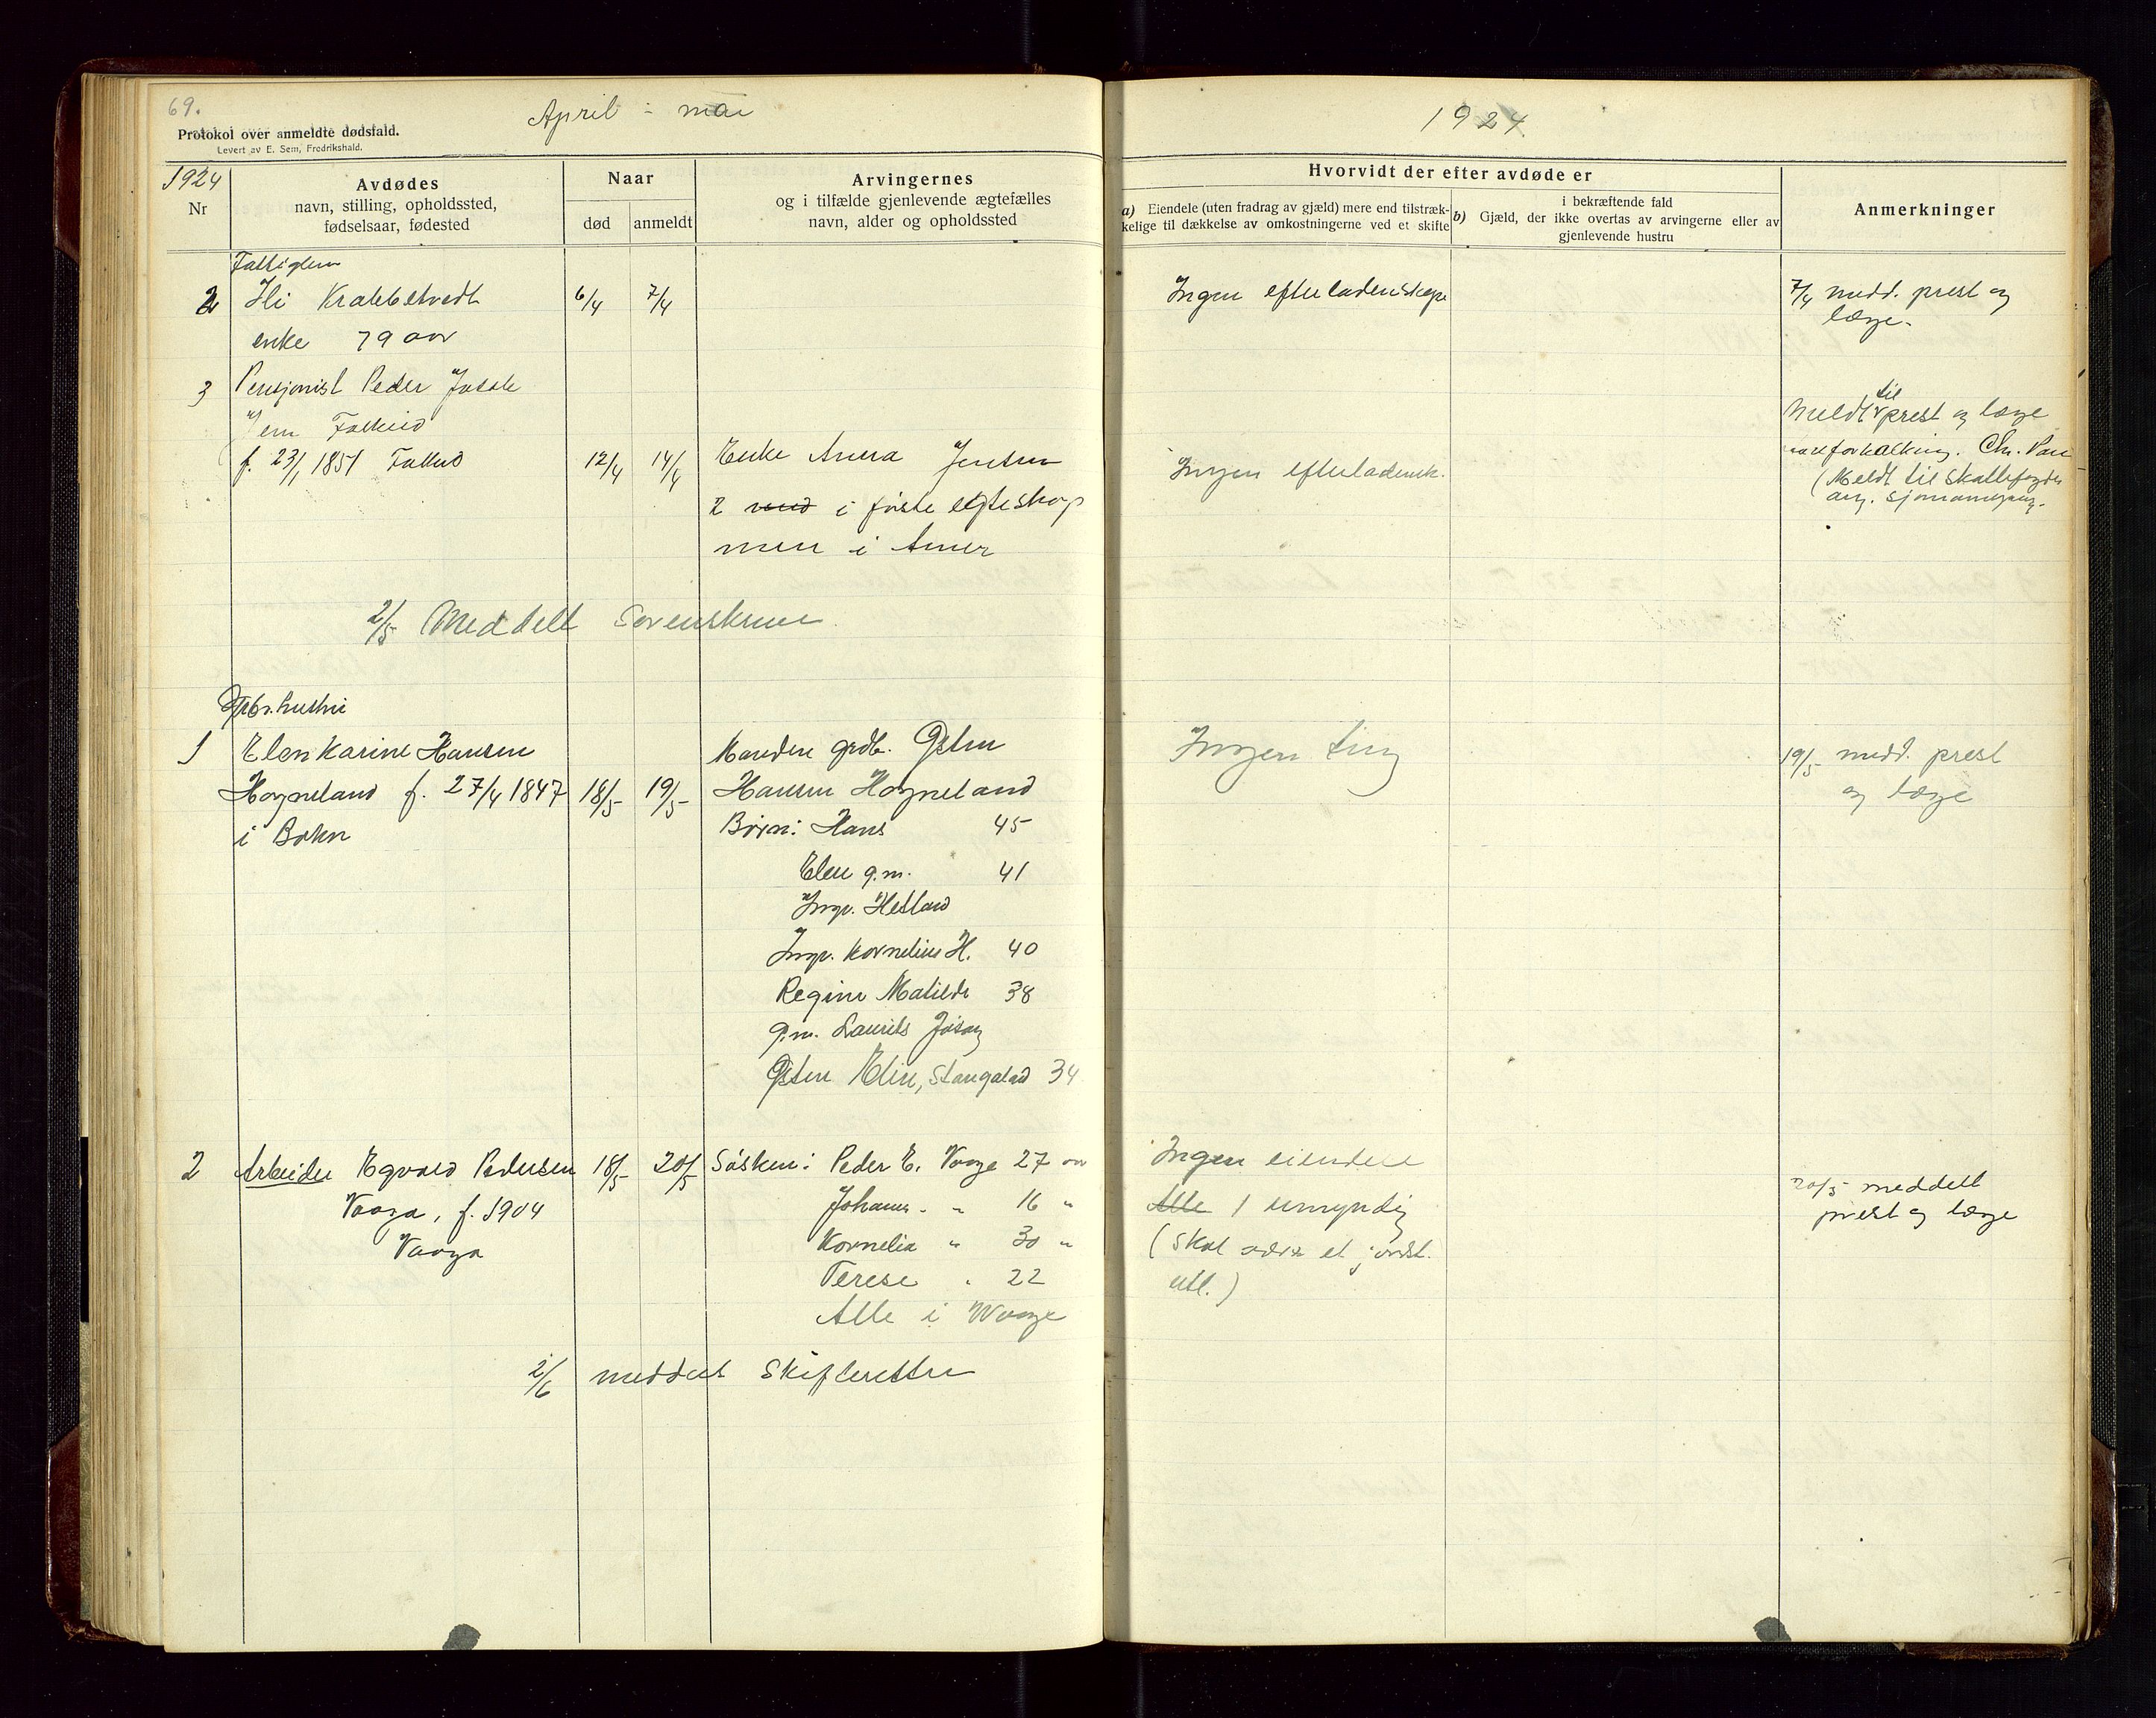 69.
April - mai
Protokol over anmeldte dødsfald.
Levert av E. Sem, Fredrikshald.
1924
Nr
Avdødes
navn, stilling, opholdssted,
fødselsaar, fødested
Naar
død
anmeldt
Arvingernes
og i tilfælde gjenlevende ægtefælles
navn, alder og opholdssted
Fattiglem
2 Ili Krabbetvedt 6/4 7/4
enke 79 aar
3 Pensjonist Peder Josak
f. 23/1 1851 12/4 14/4 Enke Anna Jensen
2 med i første egteskap
men i Amer
2/5 Meddelt Sorenskriver
Gbr. hustru
1 Elen Karine Hansen Manden grdb. Østen
Hogneland f. 27/4 1847 18/5 19/5 Hansen Hogneland
i Bokn Børn: Hans 45
Elen g.m. 41
Ingv. Hetland
Ingv. Kornelius H. 40
Regine Matilde 38
g.m. Laurits Jøsang
Østen Elin, Stangeland 34
2 Arbeider Egvald Pedersen 18/5 20/5 Søsken: Peder E. Vaage 27 aar
Vaage, f. 1904 Johannes - " 16 "
Vaage Kornelia " 30 "
Terese " 22
Alle i Vaage
2/6 meddelt Skifteretten
1924.
Hvorvidt der efter avdøde er
a) Eiendele (uten fradrag av gjæld) mere end tilstræk-
kelige til dækkelse av omkostningerne ved et skifte
i bekræftende fald
b) Gjæld, der ikke overtas av arvingerne eller av
gjenlevende hustru
Anmerkninger
Ingen efterladenskape 7/4 medd. prest og
læge.
til
Meldt prest og læge
Ingen efterladensk. Chr.
(Meldt til skattefogden
ang.
Ingen ting 19/5 medd. prest
og læge
Ingen eiendele
20/5 meddelt
prest og læge
Alle 1 umyndig
(Skal være et
utl.)